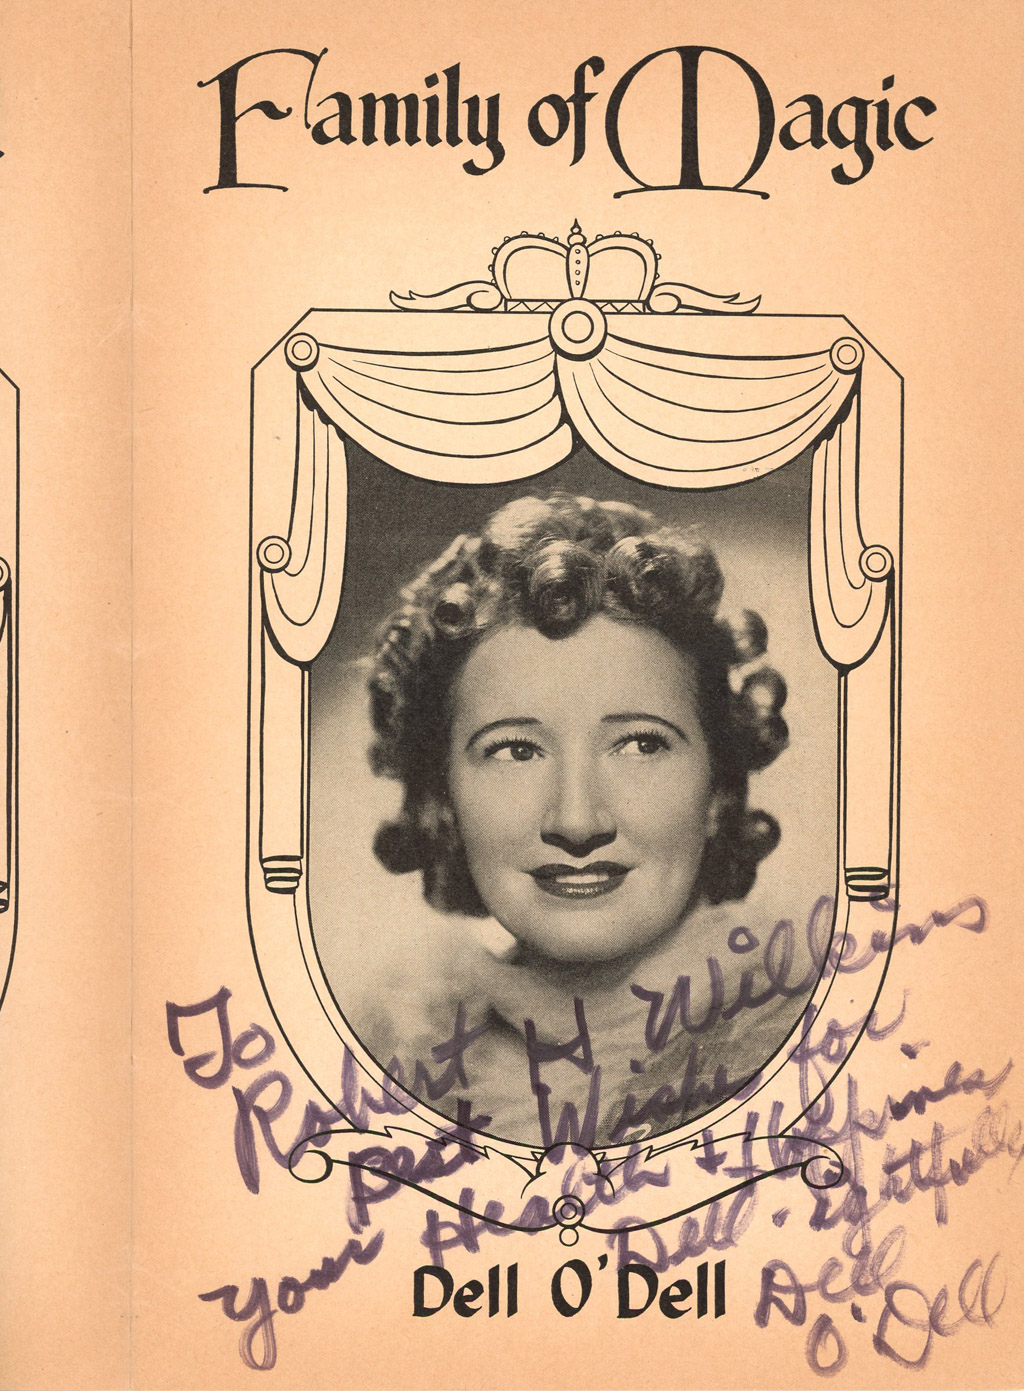 Family of Magic
To Robert H Wilkins
Best Wishes for
your Health + Happiness
Dell-ightfully
Dell
O'Dell
Dell O'Dell